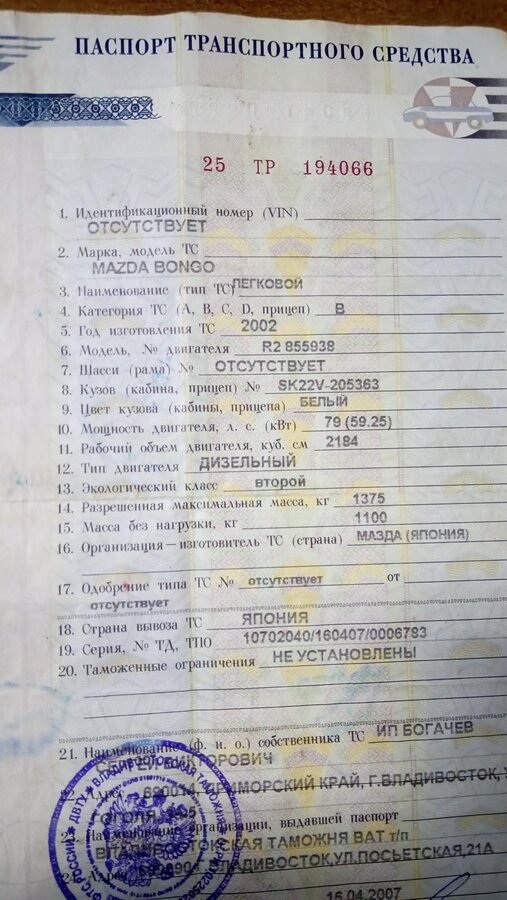 ПАСПОРТ ТРАНСПОРТНОГО СРЕДСТВА
25 ТР 194066
1. Идентификационный номер (VIN)
ОТСУТСТВУЕТ
2. Марка, модель ТС
MAZDA BONGO
3. Наименование (тип ТС) ЛЕГКОВОЙ
4. Категория ТС (А, В, С, D, прицеп) В
5. Год изготовления ТС 2002
6. Модель, № двигателя R2 855938
7. Шасси (рама) № ОТСУТСТВУЕТ
8. Кузов (кабина, прицеп) № SK22V-205363
9. Цвет кузова (кабины, прицепа) БЕЛЫЙ
10. Мощность двигателя, л. с. (кВт) 79 (59.25)
11. Рабочий объем двигателя, куб. см 2184
12. Тип двигателя ДИЗЕЛЬНЫЙ
13. Экологический класс второй
14. Разрешенная максимальная масса, кг 1375
15. Масса без нагрузки, кг 1100
16. Организация—изготовитель ТС (страна) МАЗДА (ЯПОНИЯ)
17. Одобрение типа ТС № отсутствует от
отсутствует
18. Страна вывоза ТС ЯПОНИЯ
19. Серия, № ТД, ТПО 10702040/160407/0006783
20. Таможенные ограничения НЕ УСТАНОВЛЕНЫ
21. Наименование (ф. и. о.) собственника ТС ИП БОГАЧЕВ
СЕРГЕЙ ВИКТОРОВИЧ
Адрес 690014, ПРИМОРСКИЙ КРАЙ, Г.ВЛАДИВОСТОК,
Наименование организации, выдавшей паспорт
ВЛАДИВОСТОКСКАЯ ТАМОЖНЯ ВАТ т/п
Адрес ВЛАДИВОСТОК,УЛ.ПОСЬЕТСКАЯ,21А
16.04.2007